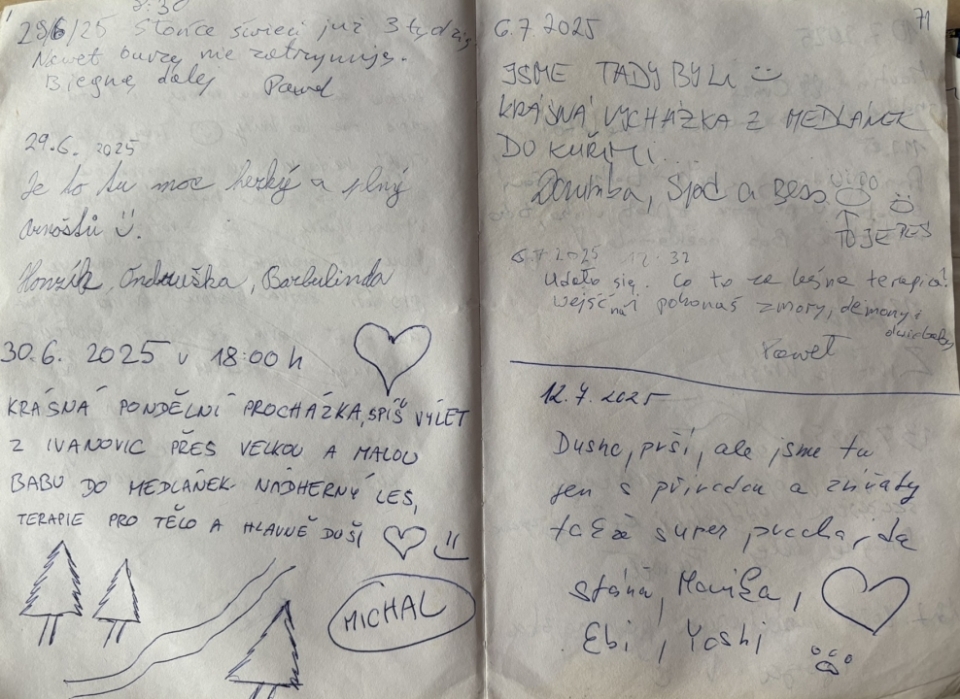 8:30
28/6/25 Słońce świeci już 3 tydzień
Nawet burze nie zatrzymują.
Biegnę dalej Paweł
29.6. 2025
Je to tu moc hezký a plný
broštů
Honzík, Ondruška, Barbulinda
30.6. 2025 v 18:00 h
KRÁSNÁ PONDĚLNÍ PROCHÁZKA, SPÍŠ VÝLET
Z IVANOVIC PŘES VELKOU A MALOU
BABU DO MEDLÁNEK. NÁDHERNÝ LES,
TERAPIE PRO TĚLO A HLAVNĚ DUŠI
MICHAL
71
6.7.2025
JSME TADY BYLI
KRÁSNÁ VYCHÁZKA Z MEDLÁNEK
DO KUŘIMI...
a Bess
TO JE PES
7 2025 12:32
Udało się. Co to za leśna terapia!
pokonaš zmory, demony i
Paweł
12.7.2025
Dusno, prší, ale jsme tu
jen s přírodou a zvířaty
takže super
Ebi, Yoshi